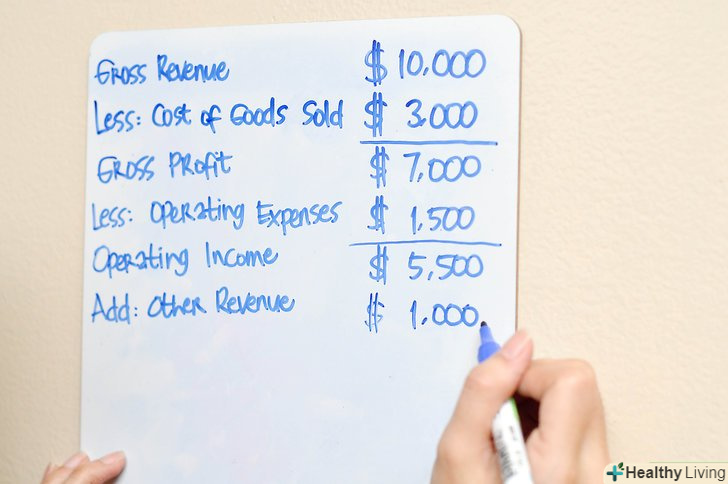 Gross Revenue $ 10,000
Less: Cost of Goods Sold $ 3,000
Gross Profit $ 7,000
Less: Operating Expenses $ 1,500
Operating Income $ 5,500
Add: Other Revenue $ 1,000
Healthy Living